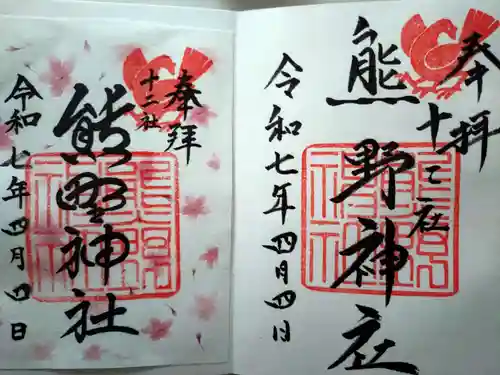 奉拝
十二社
熊野神社
令和七年四月四日
奉拝
十二社
熊野神社
令和七年四月四日